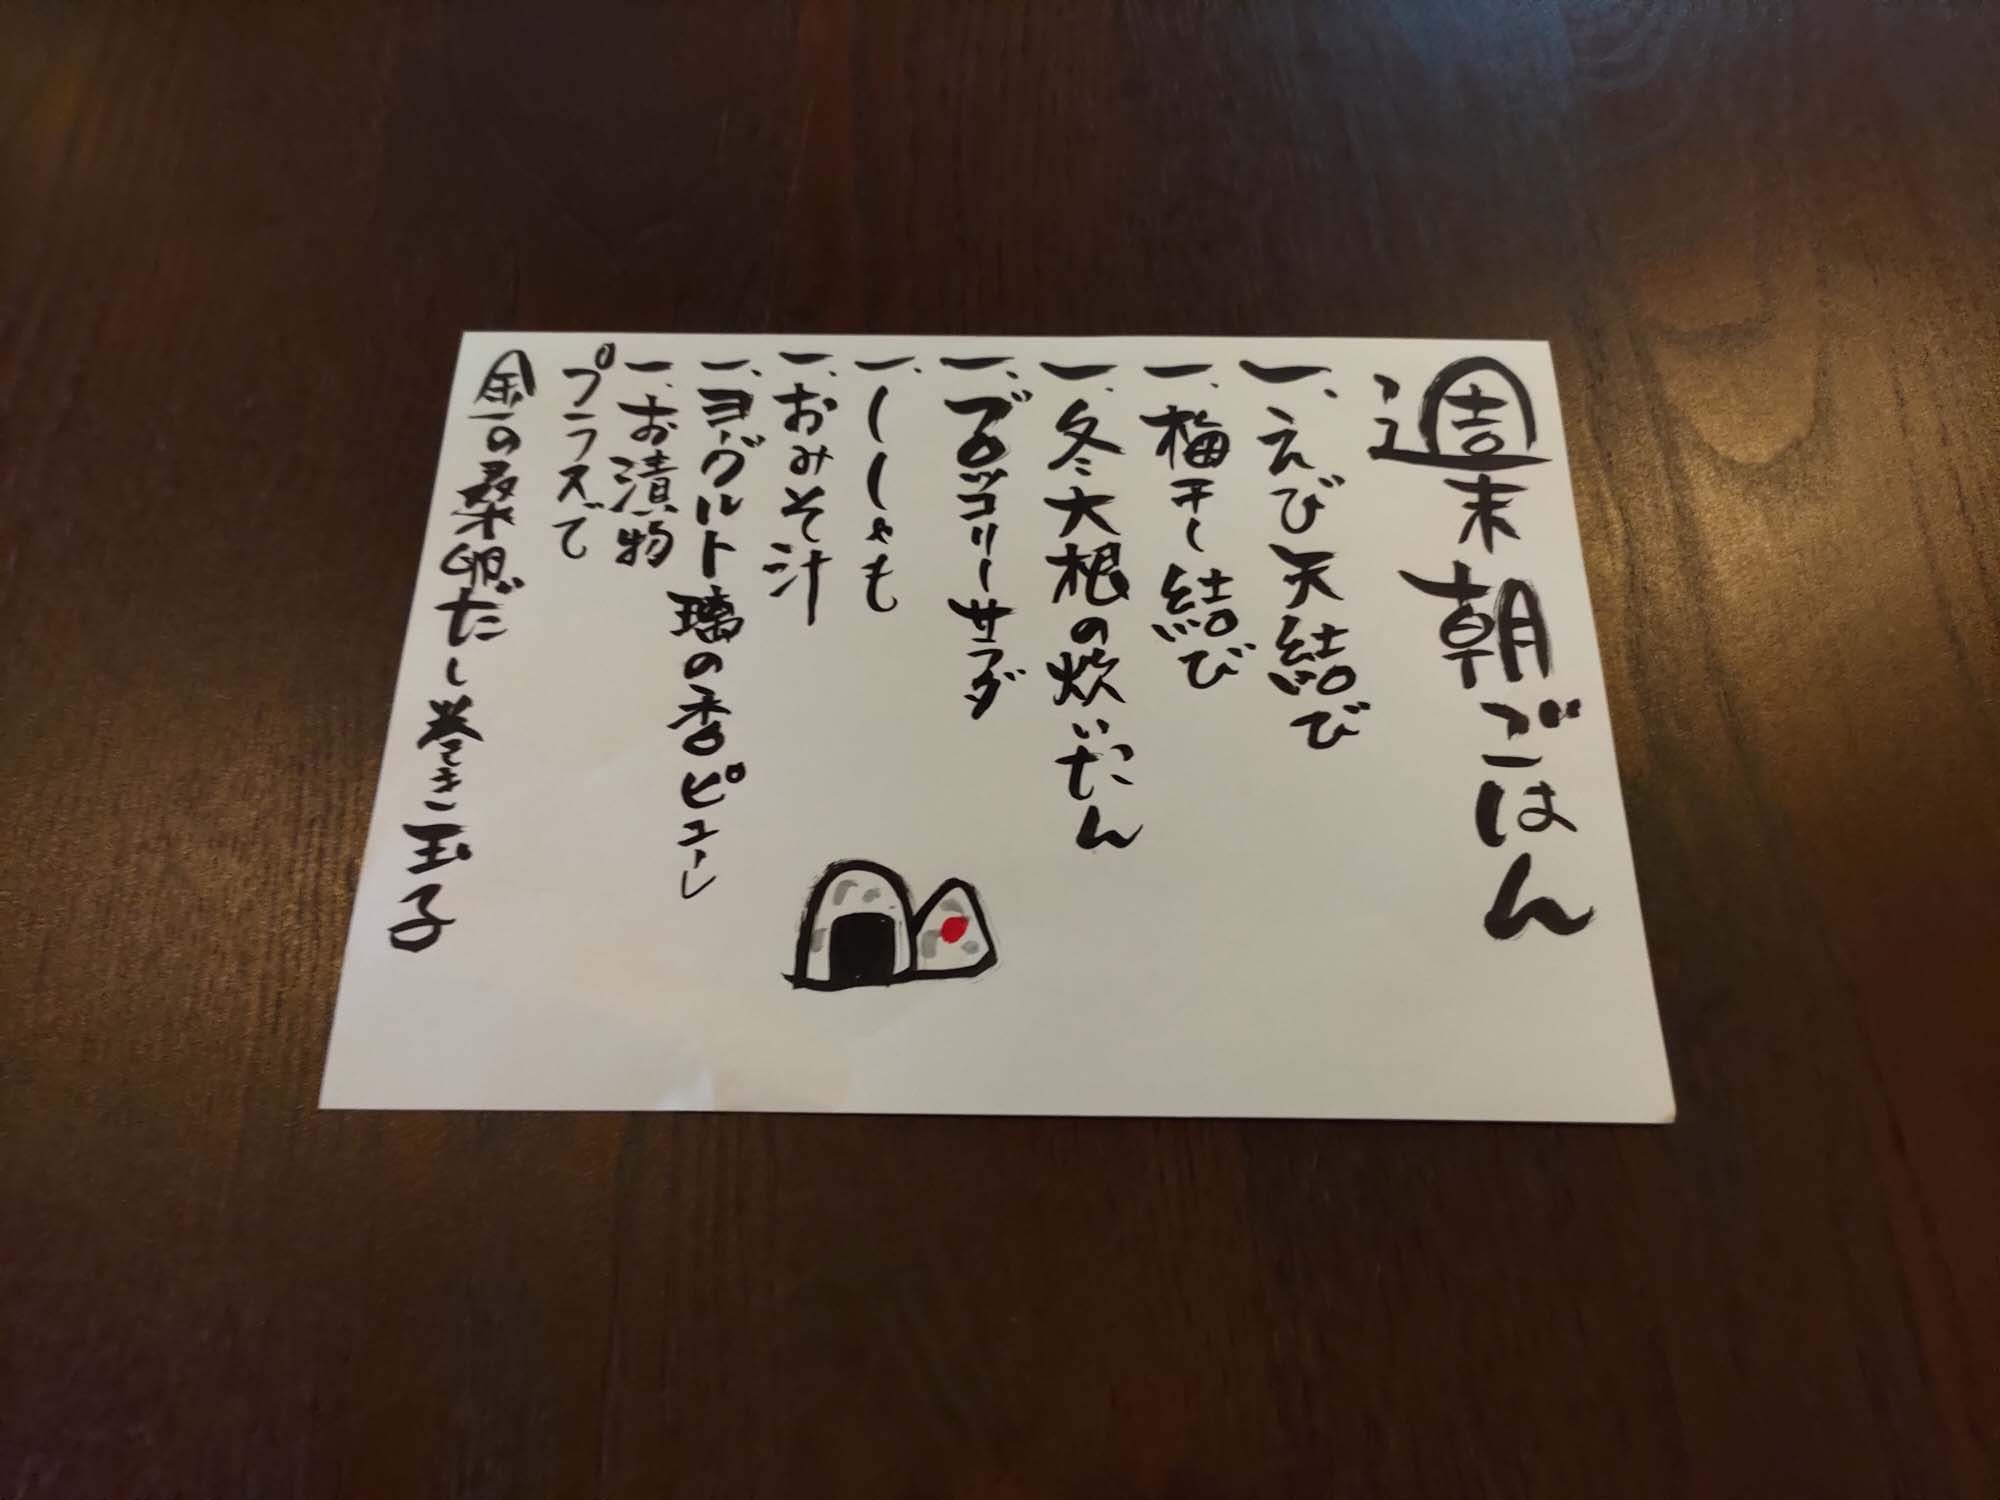 週末朝ごはん
一、えび天結び
一、梅干し結び
一、冬大根の炊いたん
一、ブロッコリーサラダ
一、ししゃも
一、おみそ汁
一、ヨーグルト 璃の香ピューレ
一、お漬物
プラスで
金の桑卵だし巻き玉子